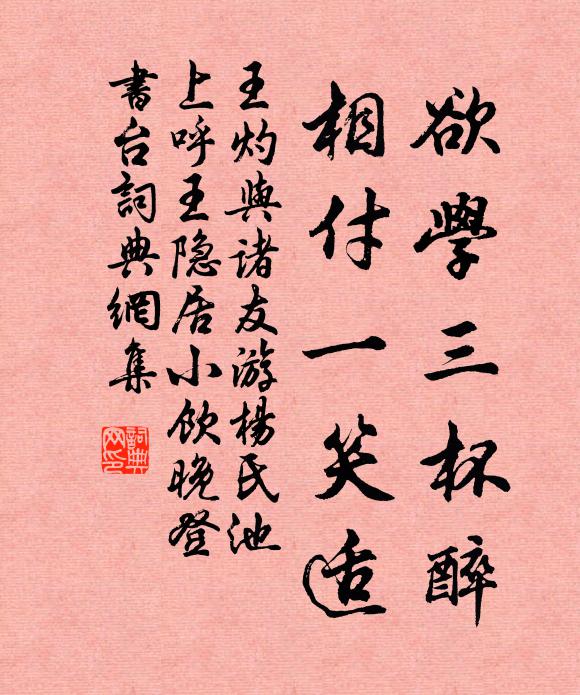 欲學三杯醉
相付一笑适
王灼與诸友游楊氏池
上呼王隐居小飲晚登
書台詞典網集
詞典
网印